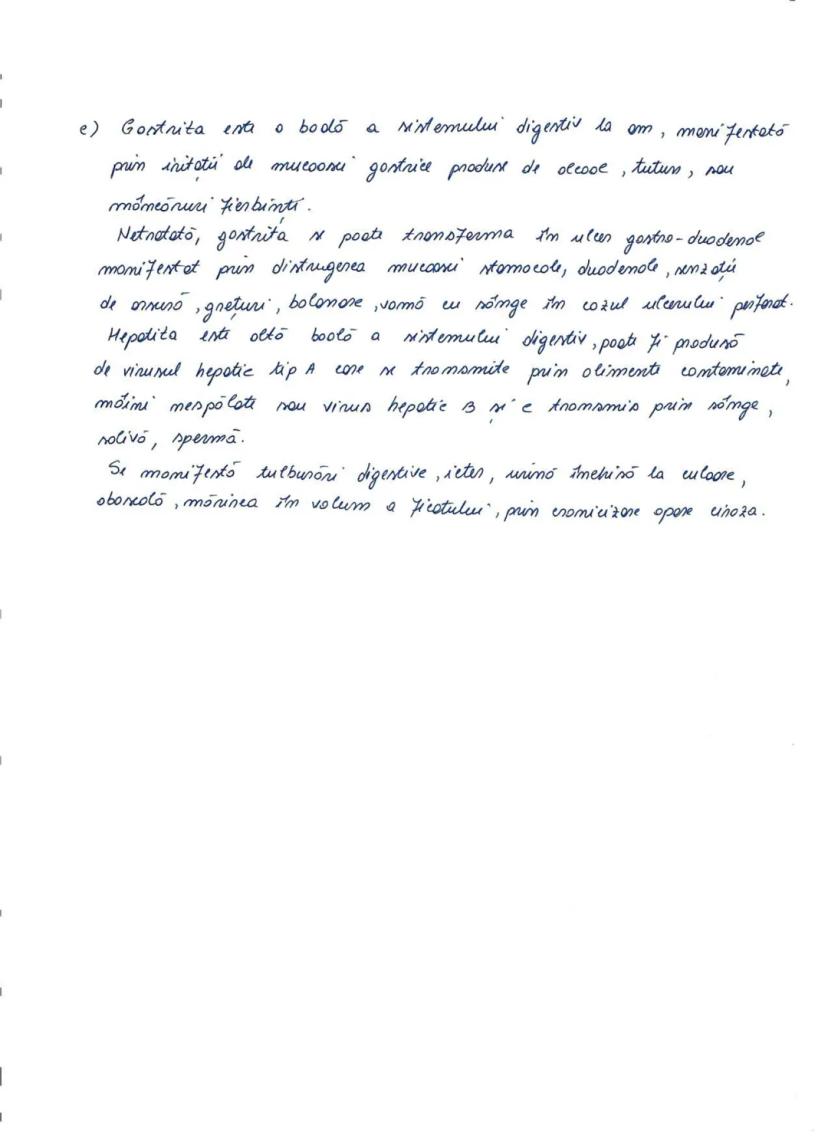 e) Gastrita este o boală a sistemului digestiv la om, manifestată
prin iritații ale mucoasei gastrice produse de alcool, tutun, sau
mâmcăruri fierbinți.
Netratată, gastrita se poate transforma în ulcer gastro-duodenal
manifestat prin distrugerea mucoasei stomacale, duodenale, senzații
de arsură, grețuri, balonare, vomă cu sânge în cazul ulcerului perforat.
Hepatita este altă boală a sistemului digestiv, poate fi produsă
de virusul hepatic tip A care se transmite prin alimente contaminate,
mâini nespălate sau virus hepatic B și e transmis prin sânge,
salivă, spermă.
Se manifestă tulburări digestive, icter, urină închisă la culoare,
oboseală, mărirea în volum a ficatului, prin cronicizare apare ciroza.